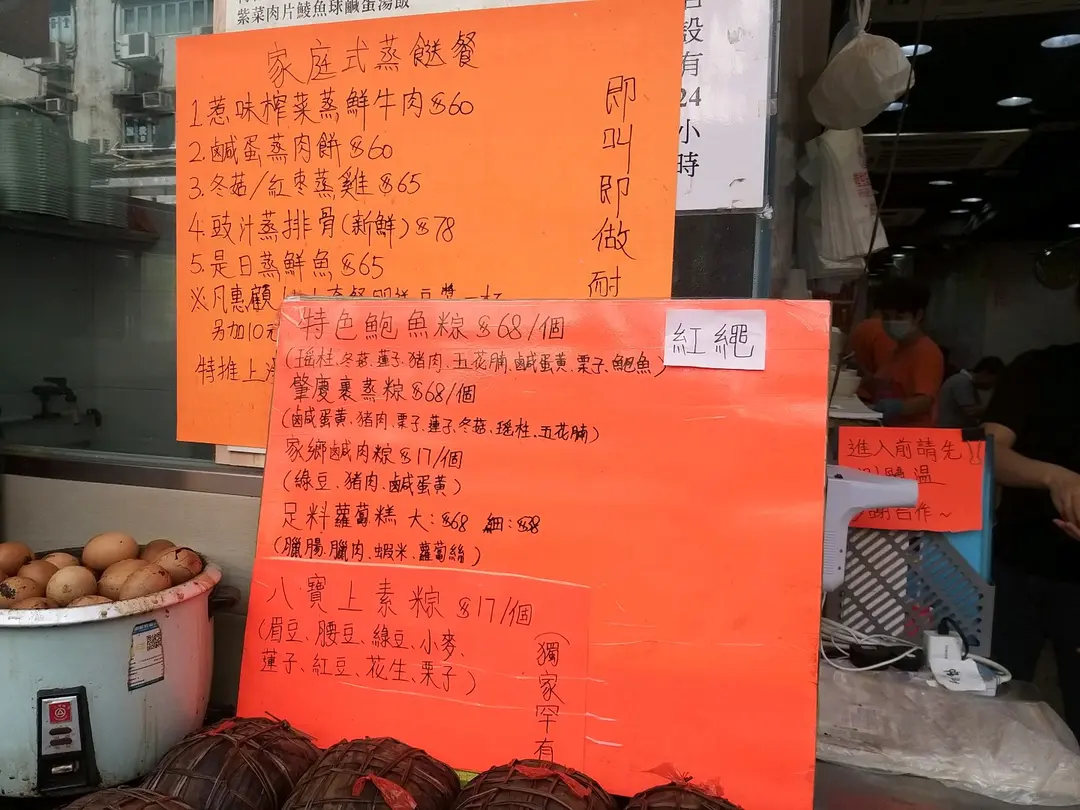 紫菜肉片鯪魚球鹹蛋湯飯
設有24小時
家庭式蒸餸餐
1.惹味榨菜蒸鮮牛肉$60
2.鹹蛋蒸肉餅$60
3.冬菇/紅枣蒸雞$65
4.豉汁蒸排骨(新鮮)$78
5.是日蒸鮮魚$65
※凡惠顧
另加10元
特推上
即叫即做耐
特色鮑魚粽$68/個
紅繩
(瑶柱.冬菇.蓮子.豬肉.五花腩.鹹蛋黄.栗子.鮑魚)
肇慶裹蒸粽$68/個
(鹹蛋黄.豬肉.栗子.蓮子.冬菇.瑶柱.五花腩)
家鄉鹹肉粽$17/個
(綠豆.豬肉.鹹蛋黄)
足料蘿蔔糕 大:$68 細:$8
(臘腸.臘肉.蝦米.蘿蔔絲)
八寶上素粽$17/個
(眉豆、腰豆、綠豆、小麥、
蓮子、紅豆、花生、栗子)
(獨家罕有
進入前請先
溫
合作~